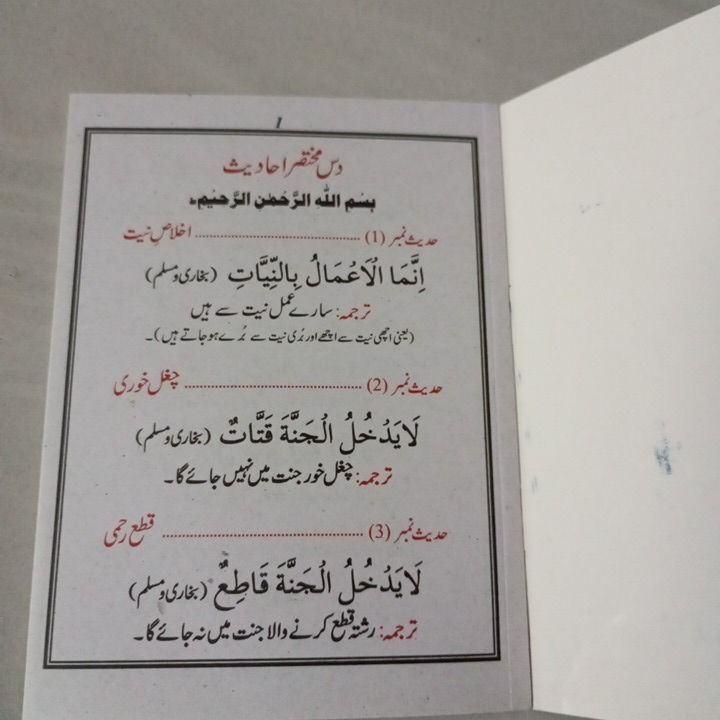 1
دس مختصر احادیث
بِسْمِ اللهِ الرَّحْمٰنِ الرَّحِيْمِ۔
حدیث نمبر (1) ........................................ اخلاصِ نیت
اِنَّمَا الْاَعْمَالُ بِالنِّيَّاتِ (بخاری و مسلم)
ترجمہ: سارے عمل نیت سے ہیں
(یعنی اچھی نیت سے اچھے اور بُری نیت سے بُرے ہو جاتے ہیں)۔
حدیث نمبر (2) ........................................ چغل خوری
لَا يَدْخُلُ الْجَنَّةَ قَتَّاتٌ (بخاری و مسلم)
ترجمہ: چغل خور جنت میں نہیں جائے گا۔
حدیث نمبر (3) ........................................ قطع رحمی
لَا يَدْخُلُ الْجَنَّةَ قَاطِعٌ (بخاری و مسلم)
ترجمہ: رشتہ قطع کرنے والا جنت میں نہ جائے گا۔